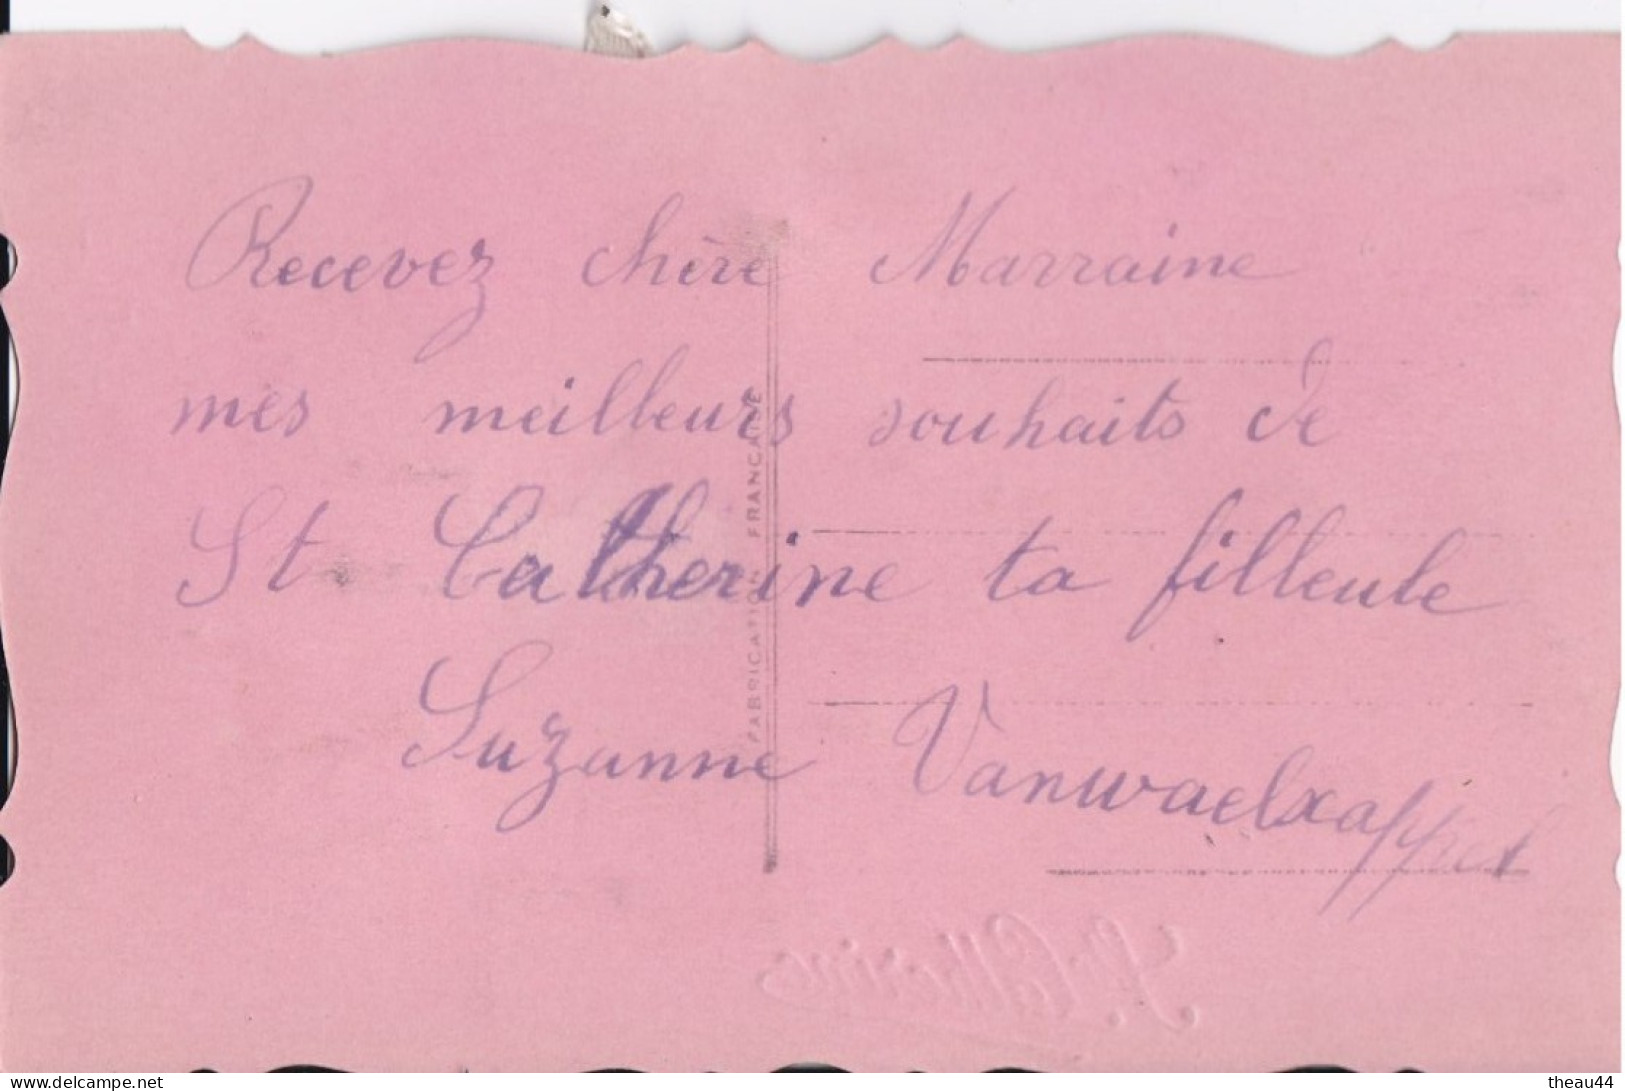 Recevez chère Marraine
mes meilleurs souhaits de
St Catherine ta filleule
Suzanne
FABRICATION FRANÇAISE
Ste Catherine
https://www.delcampe.net
theau44